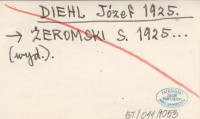 DIEHL Józef 1925.
→ ŻEROMSKI S. 1925...
(wyd.).
BJ/011/9053